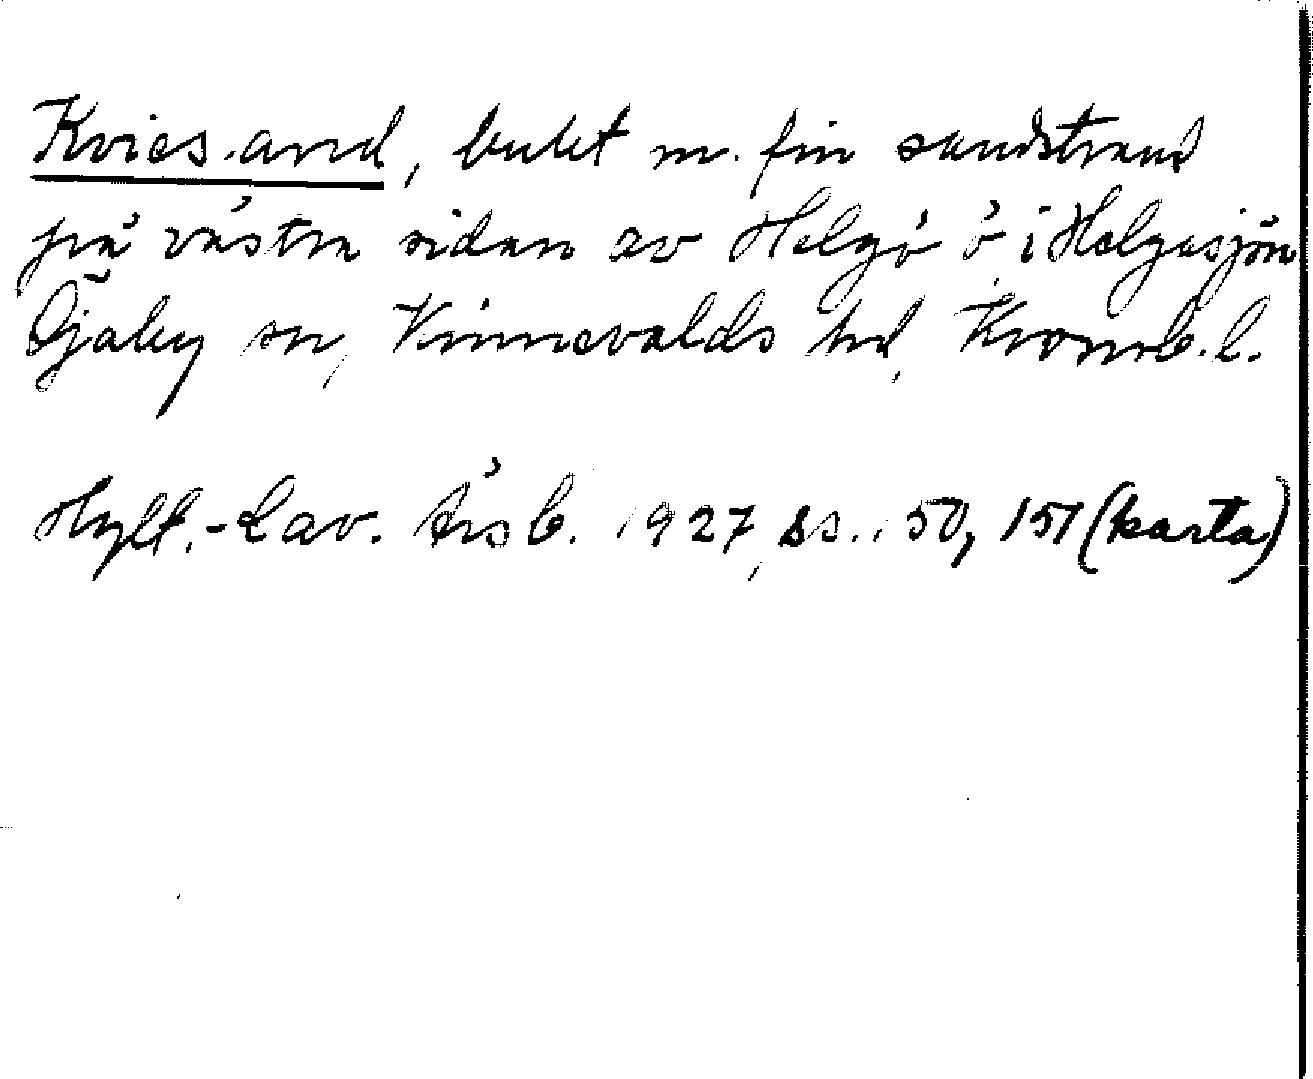 Kviesand, bukt m. fin sandstrand
på västra sidan av Helgö ö i Helgasjön
Öjaby sn, Kinnevalds hd, Kronob. l.
Hylt.-Cav. Årsb. 1927, ss. 150, 151 (karta)